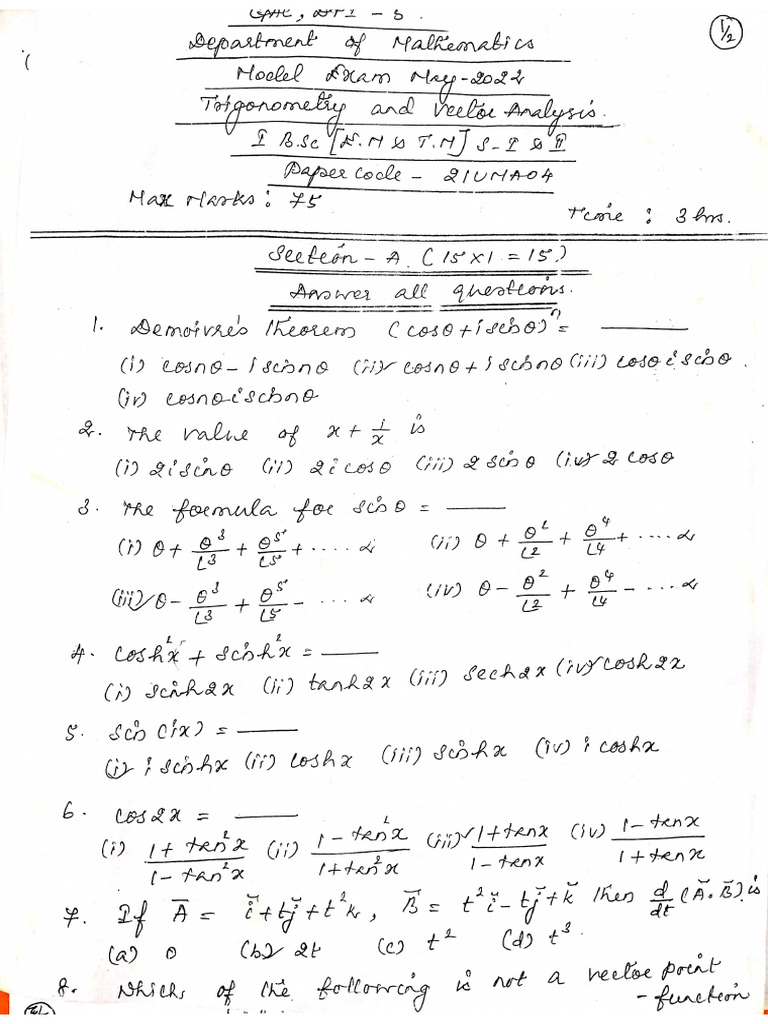 1/2
Department of Mathematics
Model Exam May-2022
Trigonometry and Vector Analysis.
I B.Sc [E.M & T.M] S-I & II
Paper code - 21UMA04
Max Marks: 75
Time : 3 hrs.
Section - A. (15 x 1 = 15.)
Answer all questions.
1. Demoivre's theorem (cosθ + i sinθ)ⁿ = ____
(i) cosnθ - i sinnθ (ii) cosnθ + i sinnθ (iii) cosθ i sinθ.
(iv) cosnθ i sinnθ
2. The value of x + 1/x is
(i) 2i sinθ (ii) 2i cosθ (iii) 2 sinθ (iv) 2 cosθ
3. The formula for sinθ = ____
(i) θ + θ³/L3 + θ⁵/L5 + ..... ∝ (ii) θ + θ²/L2 + θ⁴/L4 + .... ∝
(iii) θ - θ³/L3 + θ⁵/L5 - .... ∝ (iv) θ - θ²/L2 + θ⁴/L4 - .... ∝
4. cosh²x + sinh²x = ____
(i) sinh2x (ii) tanh2x (iii) sech2x (iv) cosh2x
5. sin(ix) = ____
(i) i sinhx (ii) coshx (iii) sinhx (iv) i coshx
6. cos2x = ____
(i) 1 + tan²x / 1 - tan²x (ii) 1 - tan²x / 1 + tan²x (iii) 1 + tanx / 1 - tanx (iv) 1 - tanx / 1 + tanx
7. If A̅ = i̅ + tj̅ + t²k, B̅ = t²i̅ - tj̅ + k̅ then d/dt (A̅ . B̅) is
(a) 0 (b) 2t (c) t² (d) t³.
8. Which of the following is not a vector point
- function